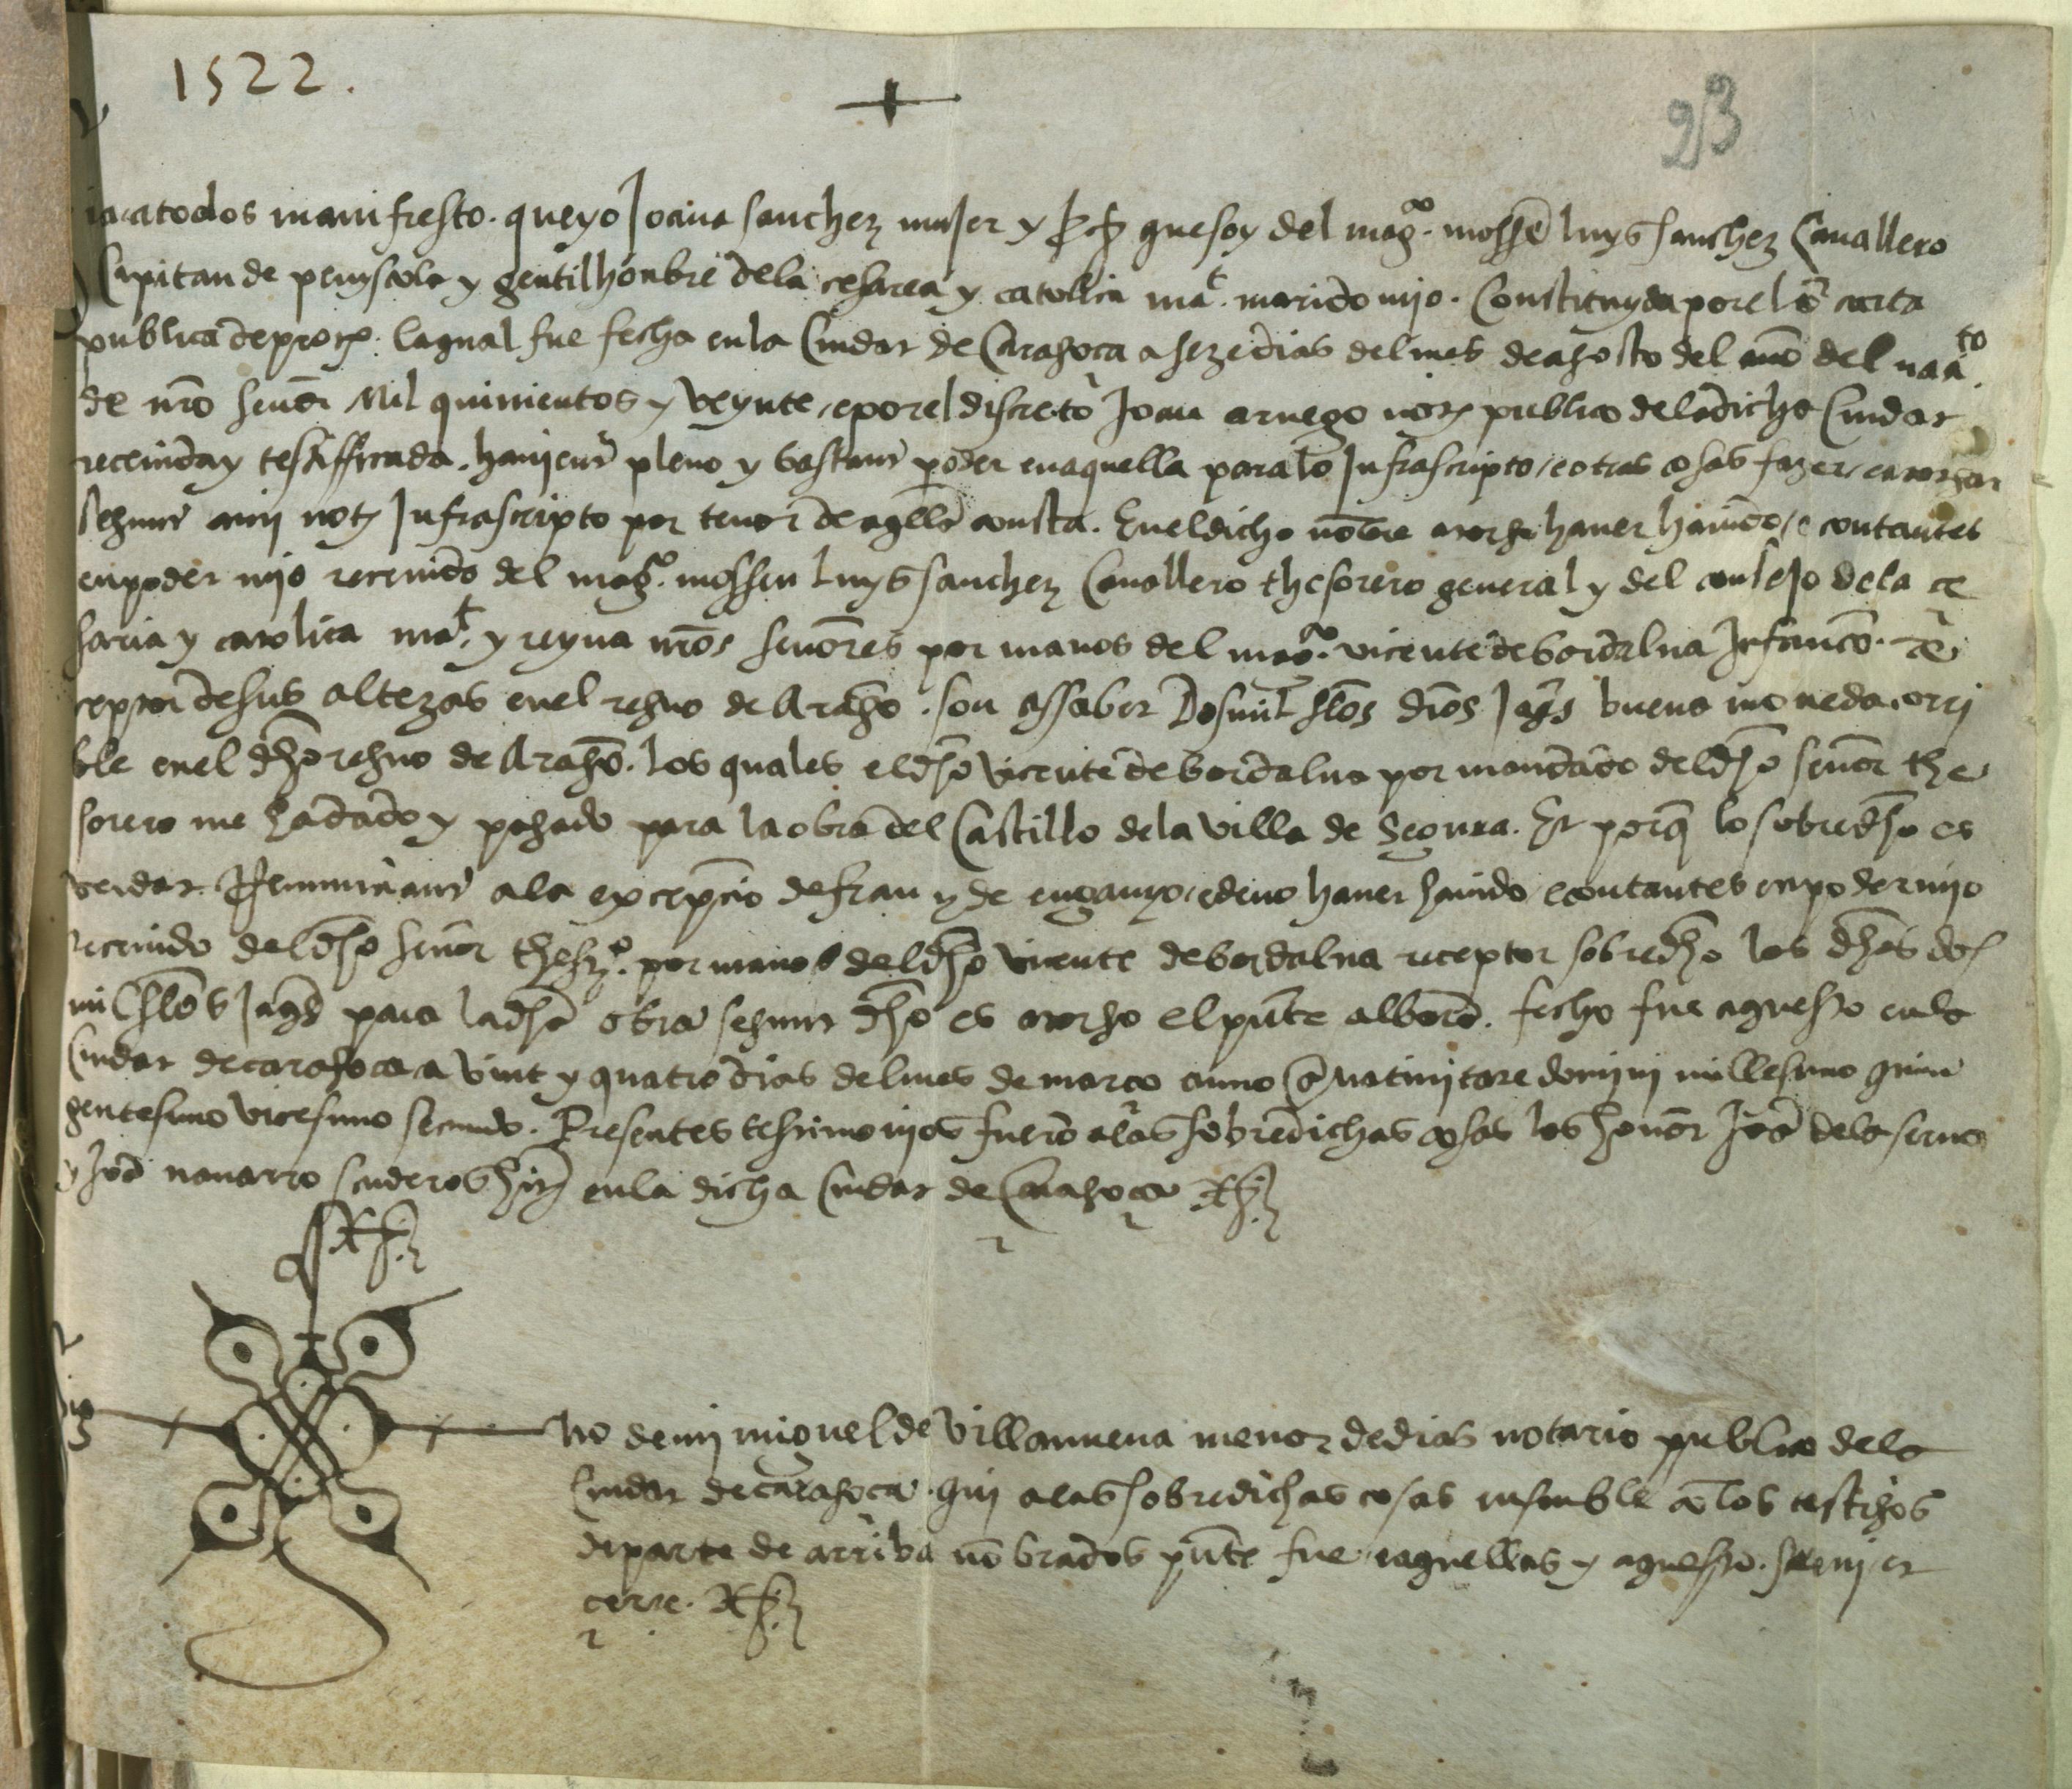 1522.
23
ia a todos manifiesto. que yo Joana sanchez mujer y que soy del magco. mossē luys sanchez Cavallero
Capitan de peniscola y gentilhonbre dela cesarea y catolica mat. marido mjo. Constituyda por el cō carta
publica de procn. la qual fue fecha en la Ciudat de Caragoça a seze dias del mes de agosto del año del naāto.
de nrō señor Mil quinientos y veynte, e por el discreto Joan aruego notº publico dela dicha Ciudat
recevida y testifficada. havient pleno y bastant poder en aquella para lo Infrascripto, e otras cosas fazer, e atorgar
segunt a mj notº Infrascripto por tenor de aqlla consta. En el dicho nōbre atorgo haver havido, e contantes
en poder mjo recevido del magco. mossen luys sanchez Cavallero thesorero general y del consejo dela ce
sarea y catolica mat. y reyna nrōs señores por manos del magco. vicente de bordalua Infançō. re
ceptor de sus altezas en el regno de Aragō. son assaber Dos mil slōs drōs Jaqs buena moneda corri
ble en el dhō regno de Aragō. los quales el dhō vicente de bordalua por mandado del dhō señor the
sorero me ha dado y pagado para la obra del Castillo dela villa de Segura. Et porq lo sobredhō es
verdat. Renunciant ala excepcio de frau y de enganyo, e de no haver havido, e contantes en poder mjo
recevido del dhō señor thesº. por manos del dhō vicente de bordalua receptor sobredhō los dhōs dos
mil slōs Jaqs para la dhā obra segunt dhō es atorgo el pnte albarā. fecho fue aquesto en la
Ciudat de caragoça a vint y quatro dias del mes de março anno a nativitate domini millesimo quin
gentesimo vicesimo secundo. Presentes testimonjos fuerō alas sobredichas cosas los honor. Joā dela serna
y Joā navarro scuderos hitⁿ en la dicha Ciudat de Caragoça
Sig
no de mj miguel de Villanueva menor de dias notario publico dela
Ciudat de caragoça. qui alas sobredichas cosas ensemble cō los testigos
de parte de arriba nōbrados pnte fue, e aquellas y aquesto. screvi, et
cerre.